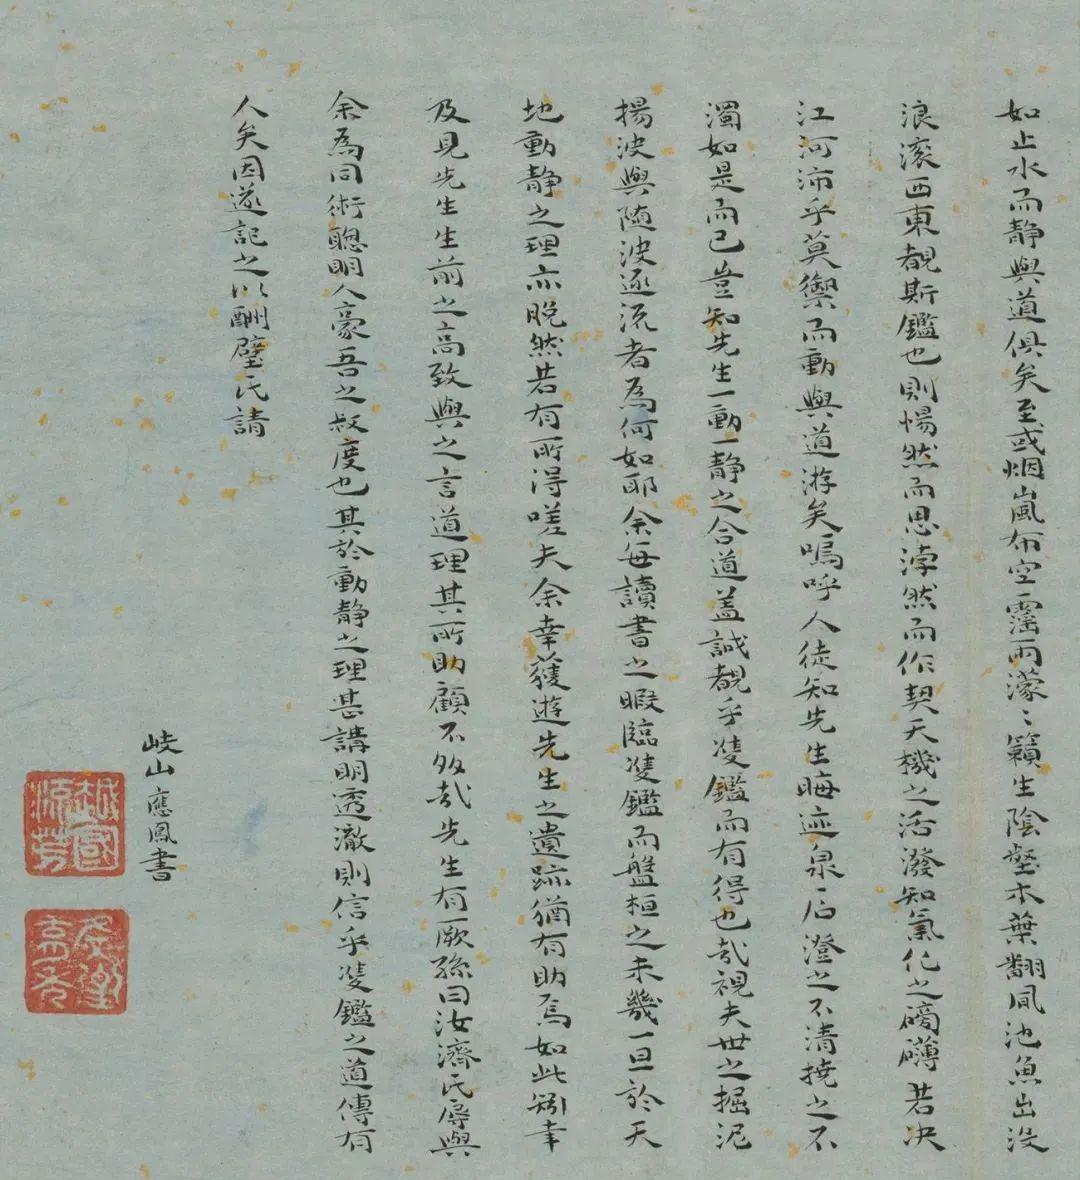 如止水而静與道俱矣至或烟嵐布空霪雨濛〻籟生陰壑木葉翻風池魚出没
浪滚西東覩斯鑑也則惕然而思浡然而作契天機之活潑知氣化之磅礴若决
江河沛乎莫禦而動與道游矣嗚呼人徒知先生晦迹泉石澄之不清撓之不
濁如是而已豈知先生一動一静之合道盖誠覩乎雙鑑而有得也哉視夫世之掘泥
揚波與随波逐流者為何如耶余每讀書之暇臨雙鑑而盤桓之未幾一旦於天
地動静之理亦晚然若有所得嗟夫余幸獲遊先生之遺跡猶有助焉如此矧幸
及見先生生前之高致與之言道理其所助顧不多哉先生有厥孫曰汝濟氏辱與
余為同術聰明人豪吾之叔度也其於動静之理甚講明透澈則信乎雙鑑之道傳有
人矣因遂記之以酬璧氏請
岐山應鳳書
越國流芳